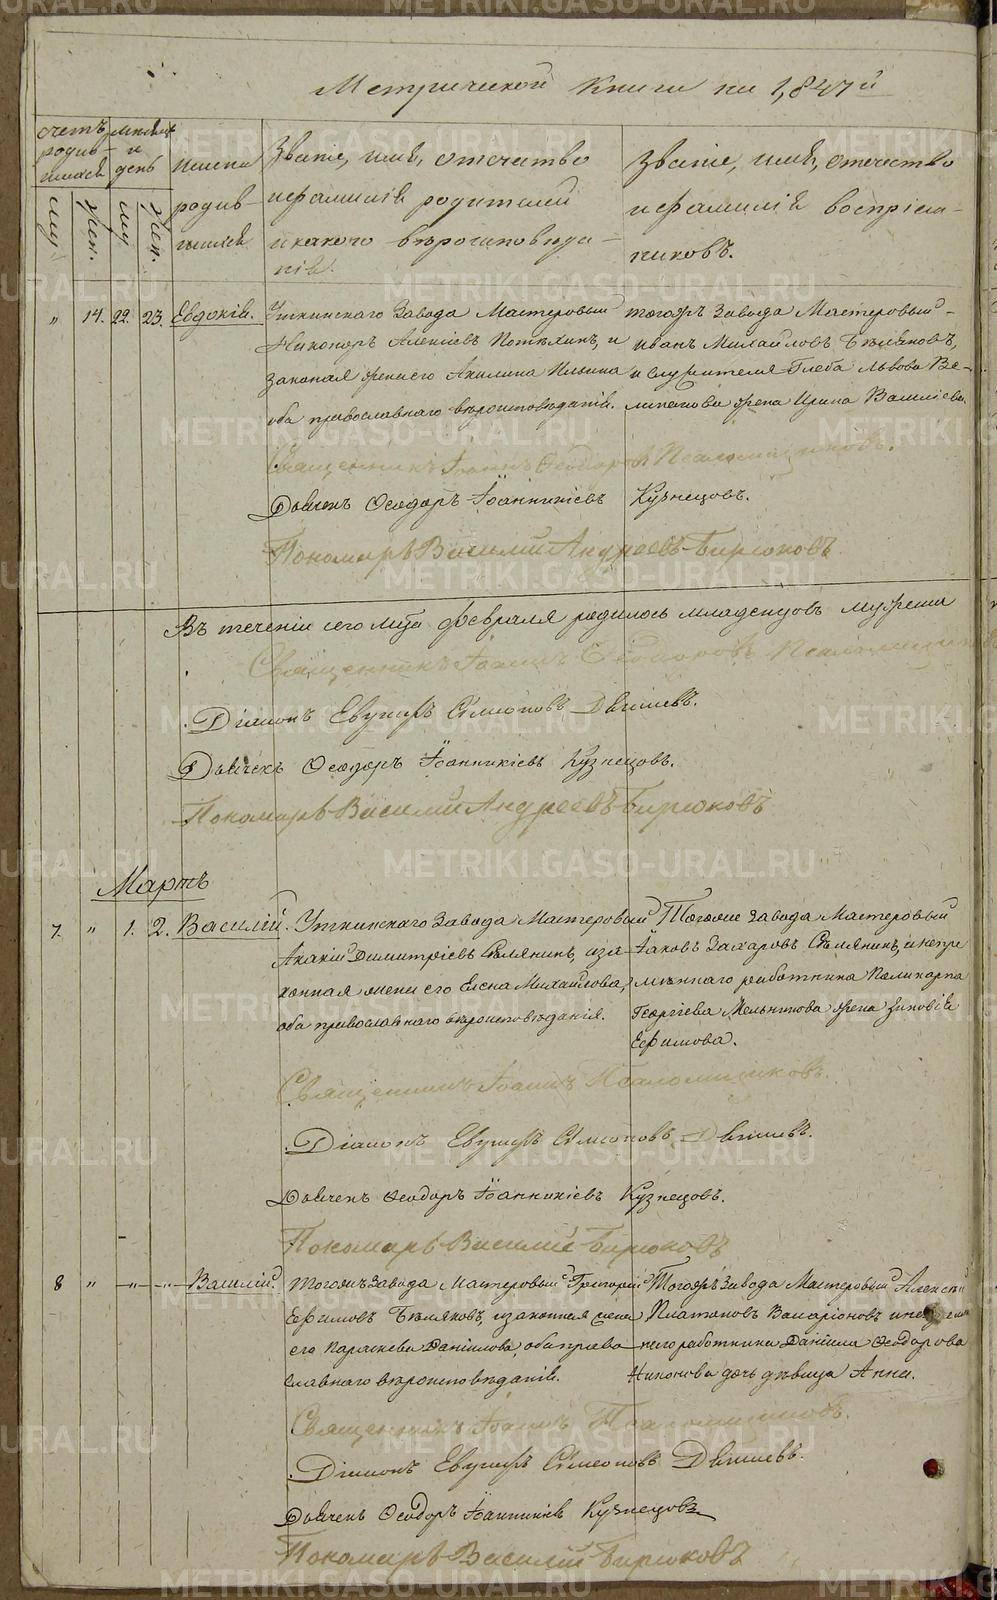 Метрической книги на 1847й
счетъ родив- шихся
мѣсяцъ и день
Имена родив- шихся
Званіе, имя, отечество
и фамилія родителей
и какого вѣроисповѣда-
нія.
Званіе, имя, отечество
и фамилія воспріем-
никовъ.
му. жен. му. жен.
" 14. 22. 23. Евдокія. Уткинскаго Завода Мастеровый
Никоноръ Алексіевъ Потѣхинъ, и
законная жена его Акилина Ильина
оба православнаго вѣроисповѣданія.
тогожъ Завода Мастеровый
Иванъ Михайловъ Бѣляковъ,
и служителя Глеба Львова
жена Ирина Василіева.
Священникъ Іоаннъ Ѳеодоровъ Псаломщиковъ.
Дьячекъ Ѳеодоръ Іоанникіевъ Кузнецовъ.
Пономарь Василій Андреевъ Бирюковъ
Въ теченіи сего мца февраля родилось младенцовъ мужеска
Священникъ Іоаннъ Ѳеодоровъ Псаломщиковъ
Діаконъ Симеоновъ
Дьячекъ Ѳеодоръ Іоанникіевъ Кузнецовъ.
Пономарь Василій Андреевъ Бирюковъ
Мартъ
7. " 1. 2. Василій. Уткинскаго Завода Мастеровый
Акакій Димитріевъ Сѣлянинъ, иза-
конная жена его Елена Михайлова,
оба православнаго вѣроисповѣданія.
Тогоже завода Мастеровый
Іаковъ Захаровъ Сѣлянинъ, и непре
мѣннаго работника Поликарпа
Георгіева Мельникова жена Зиновія
Ефимова.
Священникъ Іоаннъ Псаломщиковъ.
Діаконъ Симеоновъ
Дьячекъ Ѳеодоръ Іоанникіевъ Кузнецовъ.
Пономарь Василій Бирюковъ
8 " " " Василій. Тогожъ Завода Мастеровый Григорій
Ефимовъ Бѣляковъ, изаконная жена
его Параскева Даніилова, оба право-
славнаго вѣроисповѣданія.
Тогожъ Завода Мастеровый Алексій
Платоновъ
наго работника Даніила Ѳеодорова
Никонова дочь дѣвица Анна.
Священникъ Іоаннъ Псаломщиковъ.
Діаконъ Симеоновъ
Дьячекъ Ѳеодоръ Іоанникіевъ Кузнецовъ
Пономарь Василій Бирюковъ
METRIKI.GASO-URAL.RU